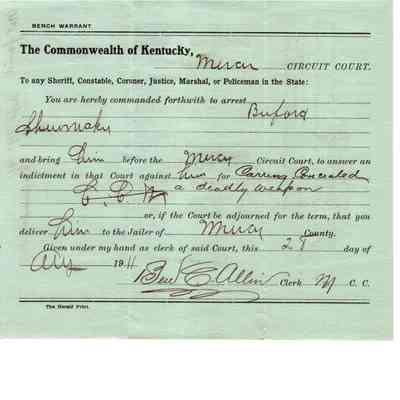 BENCH WARRANT.
The Commonwealth of Kentucky,
Mercer CIRCUIT COURT.
To any Sheriff, Constable, Coroner, Justice, Marshal, or Policeman in the State:
You are hereby commanded forthwith to arrest Buford
and bring him before the Mercer Circuit Court, to answer an
indictment in that Court against him for Carring Concealed
C. C. W a deadly weapon
or, if the Court be adjourned for the term, that you
deliver him to the Jailer of Mercer County.
Given under my hand as clerk of said Court, this 28 day of
1911 Ben C. Allin Clerk M C. C.
The Herald Print.